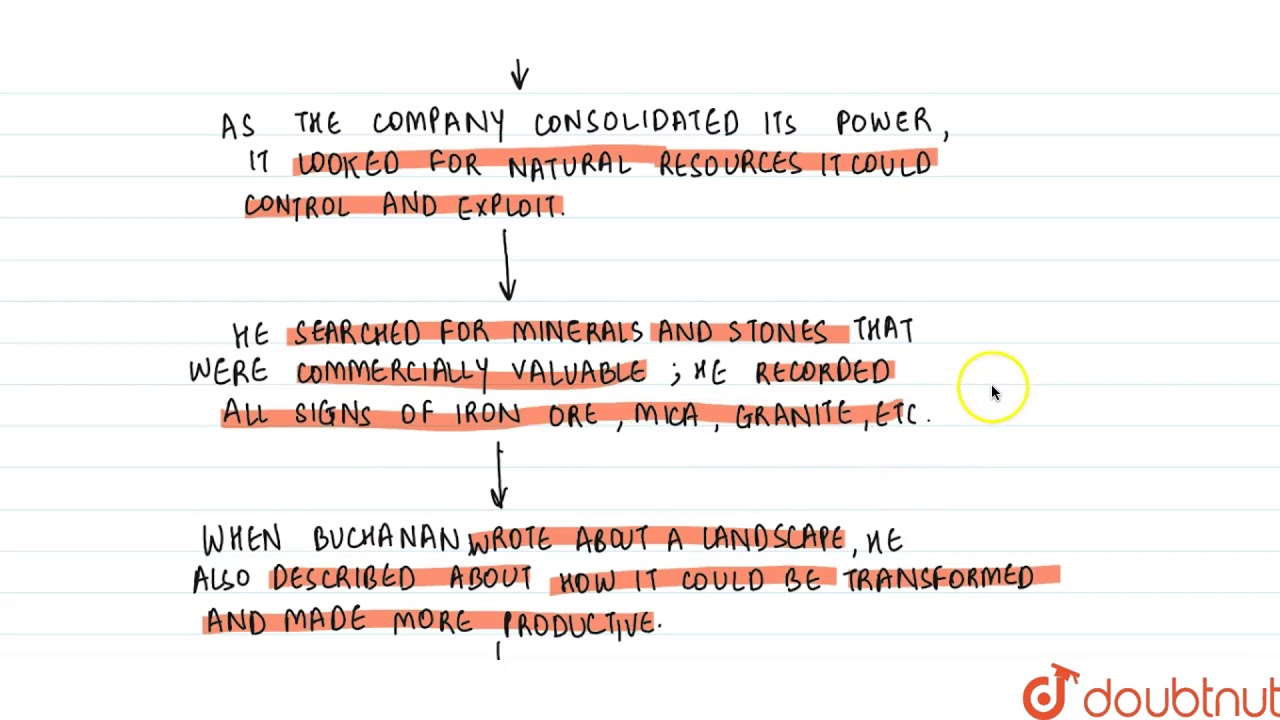 AS THE COMPANY CONSOLIDATED ITS POWER,
IT LOOKED FOR NATURAL RESOURCES IT COULD
CONTROL AND EXPLOIT.
HE SEARCHED FOR MINERALS AND STONES THAT
WERE COMMERCIALLY VALUABLE ; HE RECORDED
ALL SIGNS OF IRON ORE, MICA, GRANITE, ETC.
WHEN BUCHANAN WROTE ABOUT A LANDSCAPE, HE
ALSO DESCRIBED ABOUT HOW IT COULD BE TRANSFORMED
AND MADE MORE PRODUCTIVE.
doubtnut